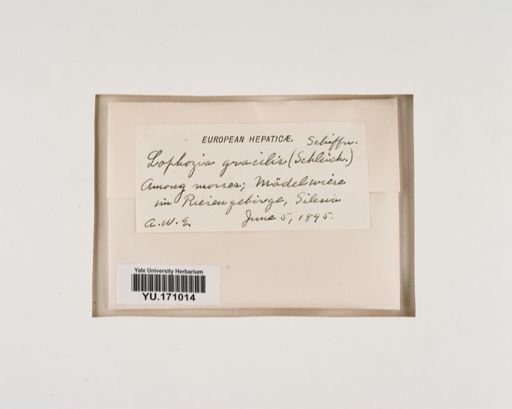 EUROPEAN HEPATICÆ. Schiffn.
Lophozia gracilis (Schleich.)
Among mosses; Mädelwiese
im Riesengebirge, Silesia
A.W.E. June 5, 1895.
Yale University Herbarium
YU.171014